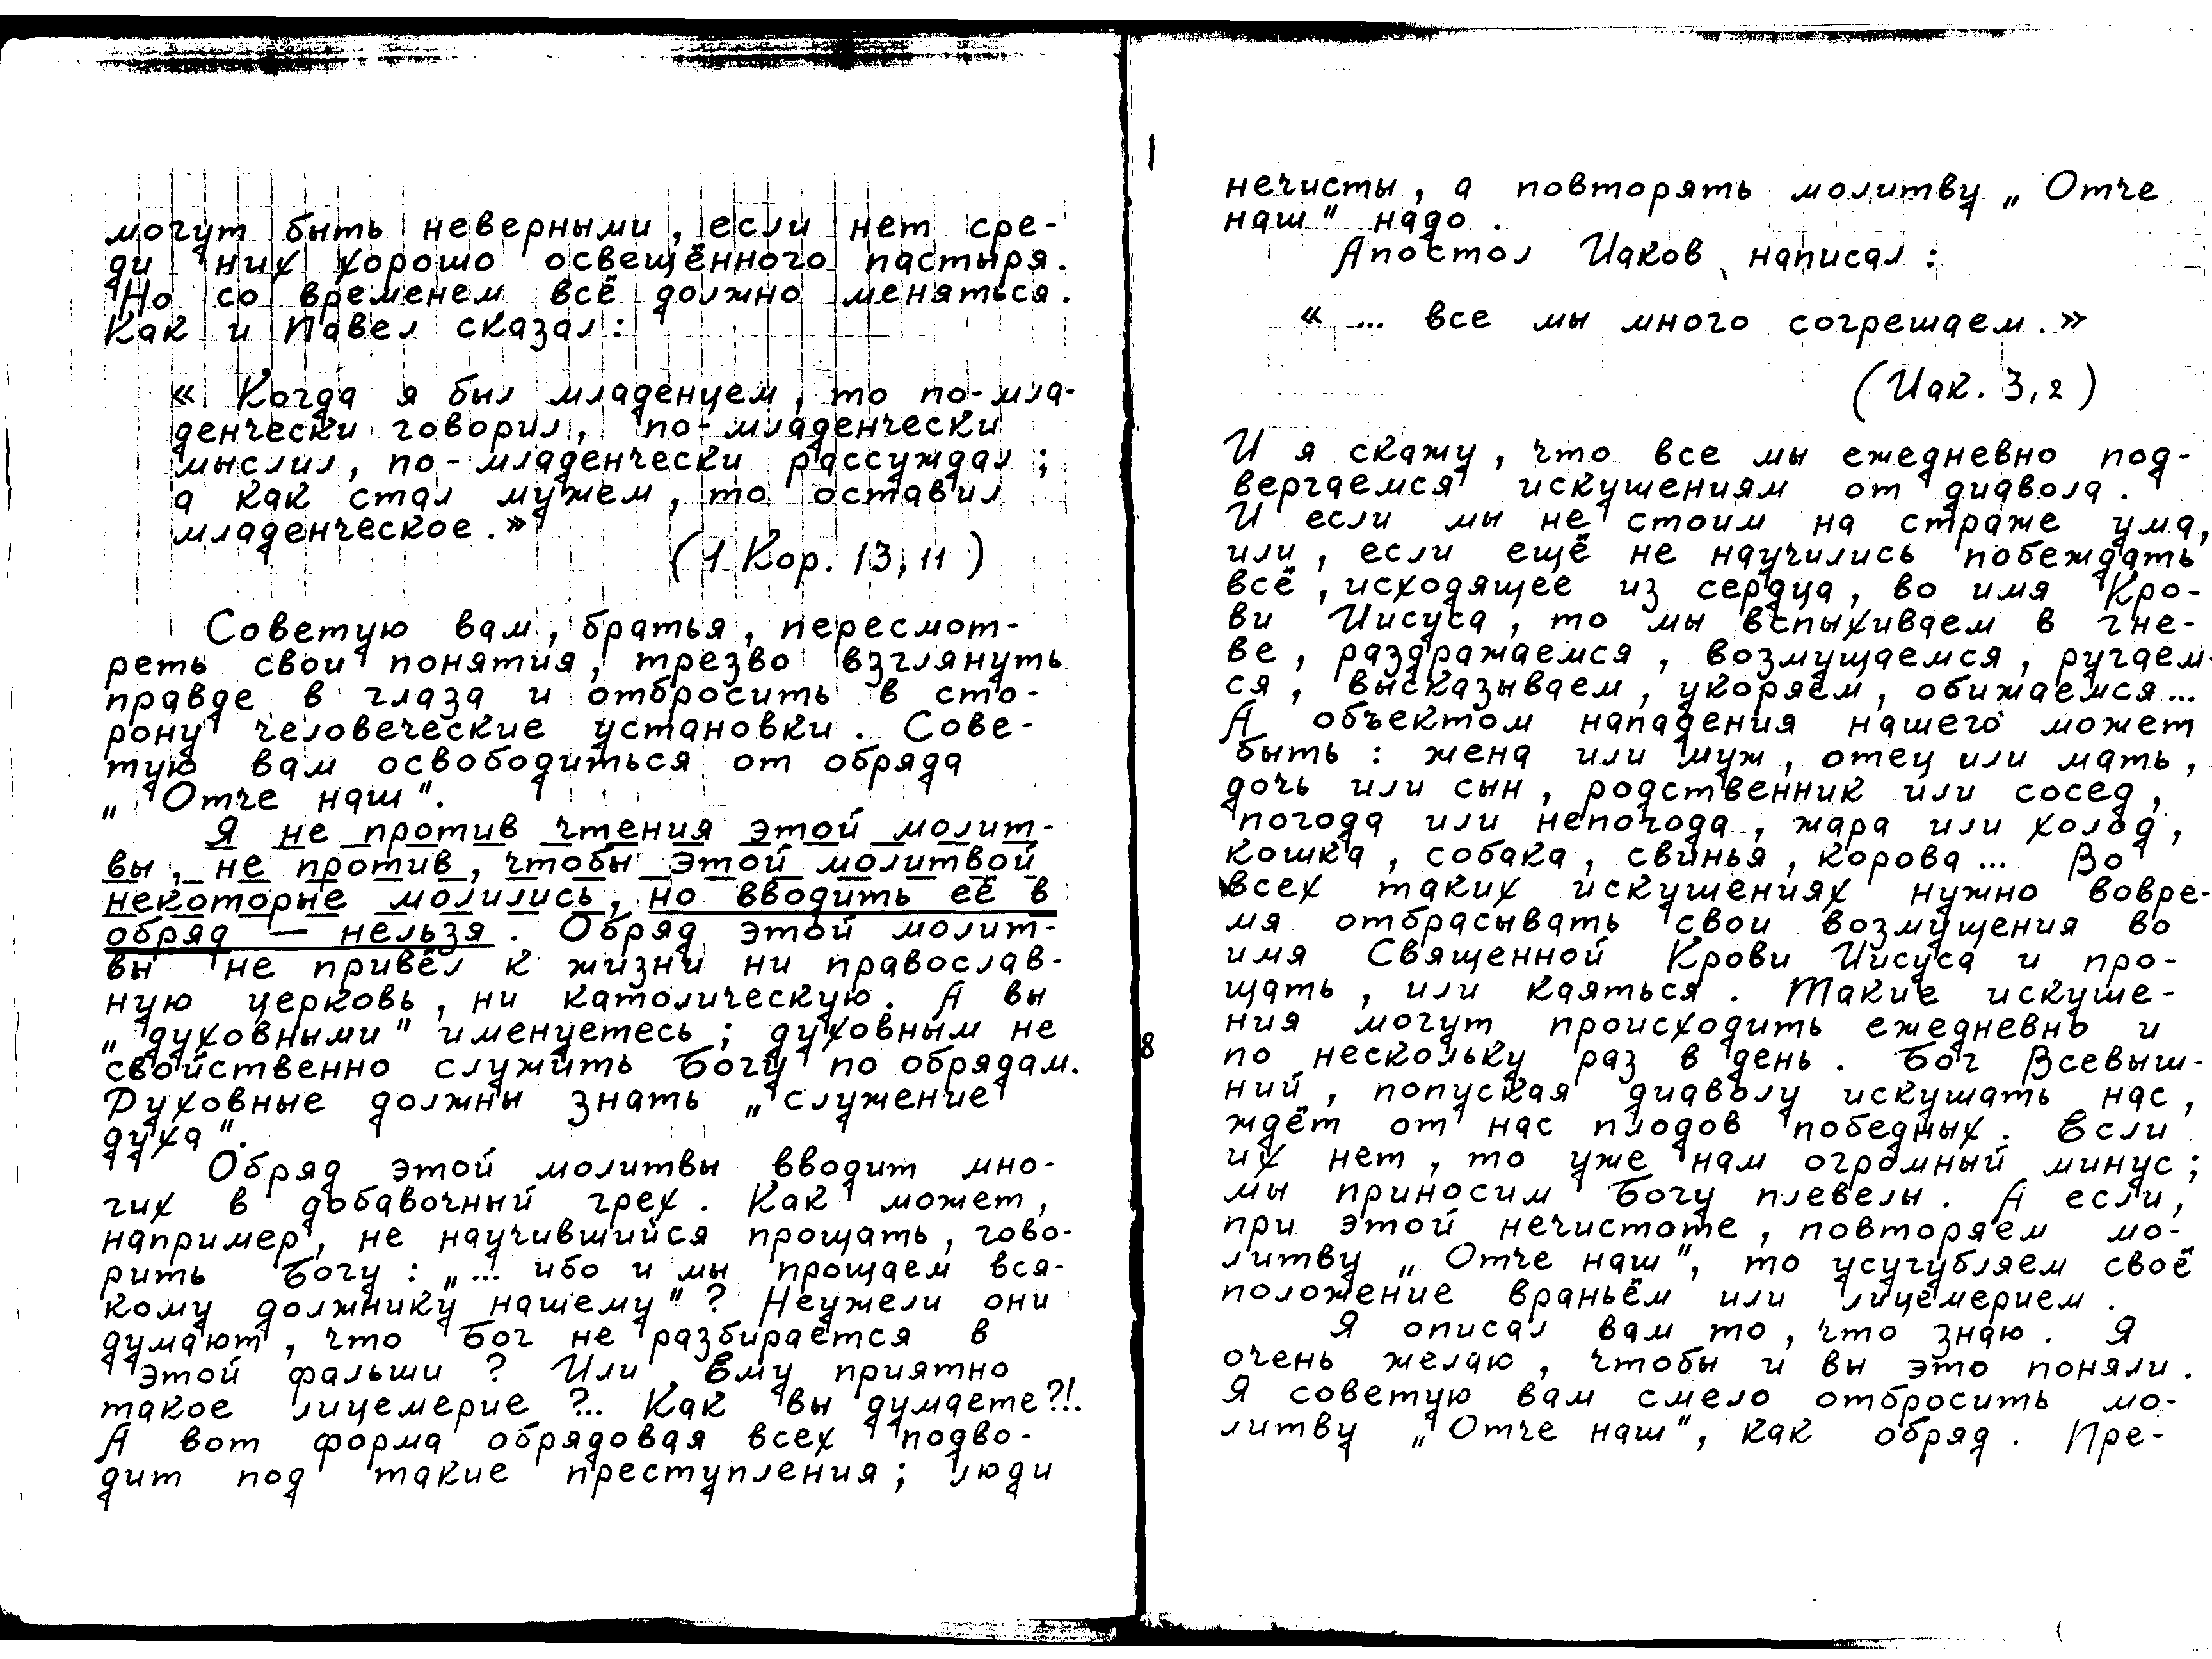 могут быть неверными, если нет сре-
ди них хорошо освещённого пастыря.
Но со временем всё должно меняться.
Как и Павел сказал:
« Когда я был младенцем, то по-мла-
денчески говорил, по-младенчески
мыслил, по-младенчески рассуждал;
а как стал мужем, то оставил
младенческое.»
(1 Кор. 13, 11)
Советую вам, братья, пересмот-
реть свои понятия, трезво взглянуть
правде в глаза и отбросить в сто-
рону человеческие установки. Сове-
тую вам освободиться от обряда
„Отче наш".
Я не против чтения этой молит-
вы, не против, чтобы этой молитвой
некоторые молились, но вводить её в
обряд — нельзя. Обряд этой молит-
вы не привёл к жизни ни православ-
ную церковь, ни католическую. А вы
„духовными" именуетесь; духовным не
свойственно служить Богу по обрядам.
Духовные должны знать „служение
духа".
Обряд этой молитвы вводит мно-
гих в добавочный грех. Как может,
например, не научившийся прощать, гово-
рить Богу: „... ибо и мы прощаем вся-
кому должнику нашему"? Неужели они
думают, что Бог не разбирается в
этой фальши? Или Ему приятно
такое лицемерие?.. Как вы думаете?!.
А вот форма обрядовая всех подво-
дит под такие преступления; люди
нечисты, а повторять молитву „Отче
наш" надо.
Апостол Иаков написал:
« ... все мы много согрешаем.»
(Иак. 3, 2)
И я скажу, что все мы ежедневно под-
вергаемся искушениям от диавола.
И если мы не стоим на страже ума,
или, если ещё не научились побеждать
всё, исходящее из сердца, во имя Кро-
ви Иисуса, то мы вспыхиваем в гне-
ве, раздражаемся, возмущаемся, ругаем-
ся, высказываем, укоряем, обижаемся...
А объектом нападения нашего может
быть: жена или муж, отец или мать,
дочь или сын, родственник или сосед,
погода или непогода, жара или холод,
кошка, собака, свинья, корова... Во
всех таких искушениях нужно вовре-
мя отбрасывать свои возмущения во
имя Священной Крови Иисуса и про-
щать, или каяться. Такие искуше-
ния могут происходить ежедневно и
8
по нескольку раз в день. Бог Всевыш-
ний, попуская диаволу искушать нас,
ждёт от нас плодов победных. Если
их нет, то уже нам огромный минус;
мы приносим Богу плевелы. А если,
при этой нечистоте, повторяем мо-
литву „Отче наш", то усугубляем своё
положение враньём или лицемерием.
Я описал вам то, что знаю. Я
очень желаю, чтобы и вы это поняли.
Я советую вам смело отбросить мо-
литву „Отче наш", как обряд. Пре-